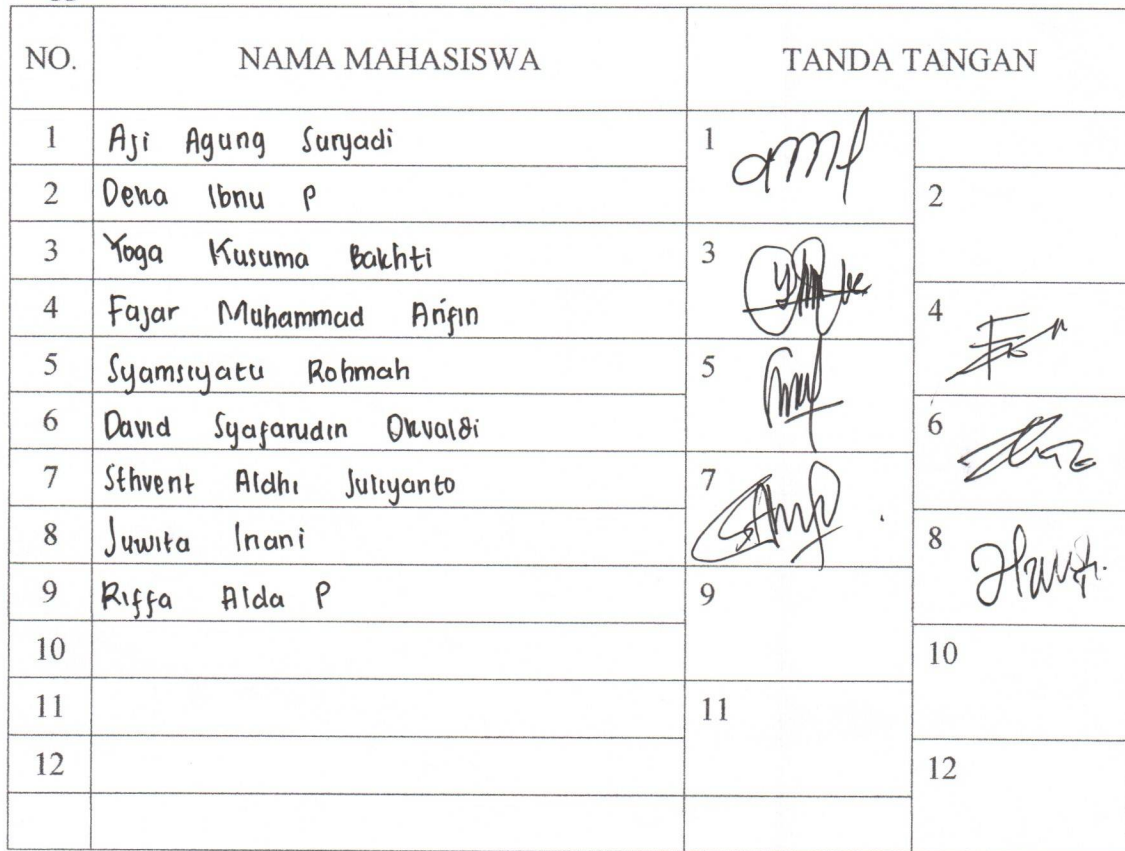 NO. NAMA MAHASISWA TANDA TANGAN
1 Aji Agung Suryadi 1
2 Dena Ibnu P 2
3 Yoga Kusuma Bakhti 3
4 Fajar Muhammad Arifin 4
5 Syamsiyatu Rohmah 5
6 David Syafarudin 6
7 Sthvent Aldhi Juliyanto 7
8 Juwita Inani 8
9 Riffa Alda P 9
10 10
11 11
12 12